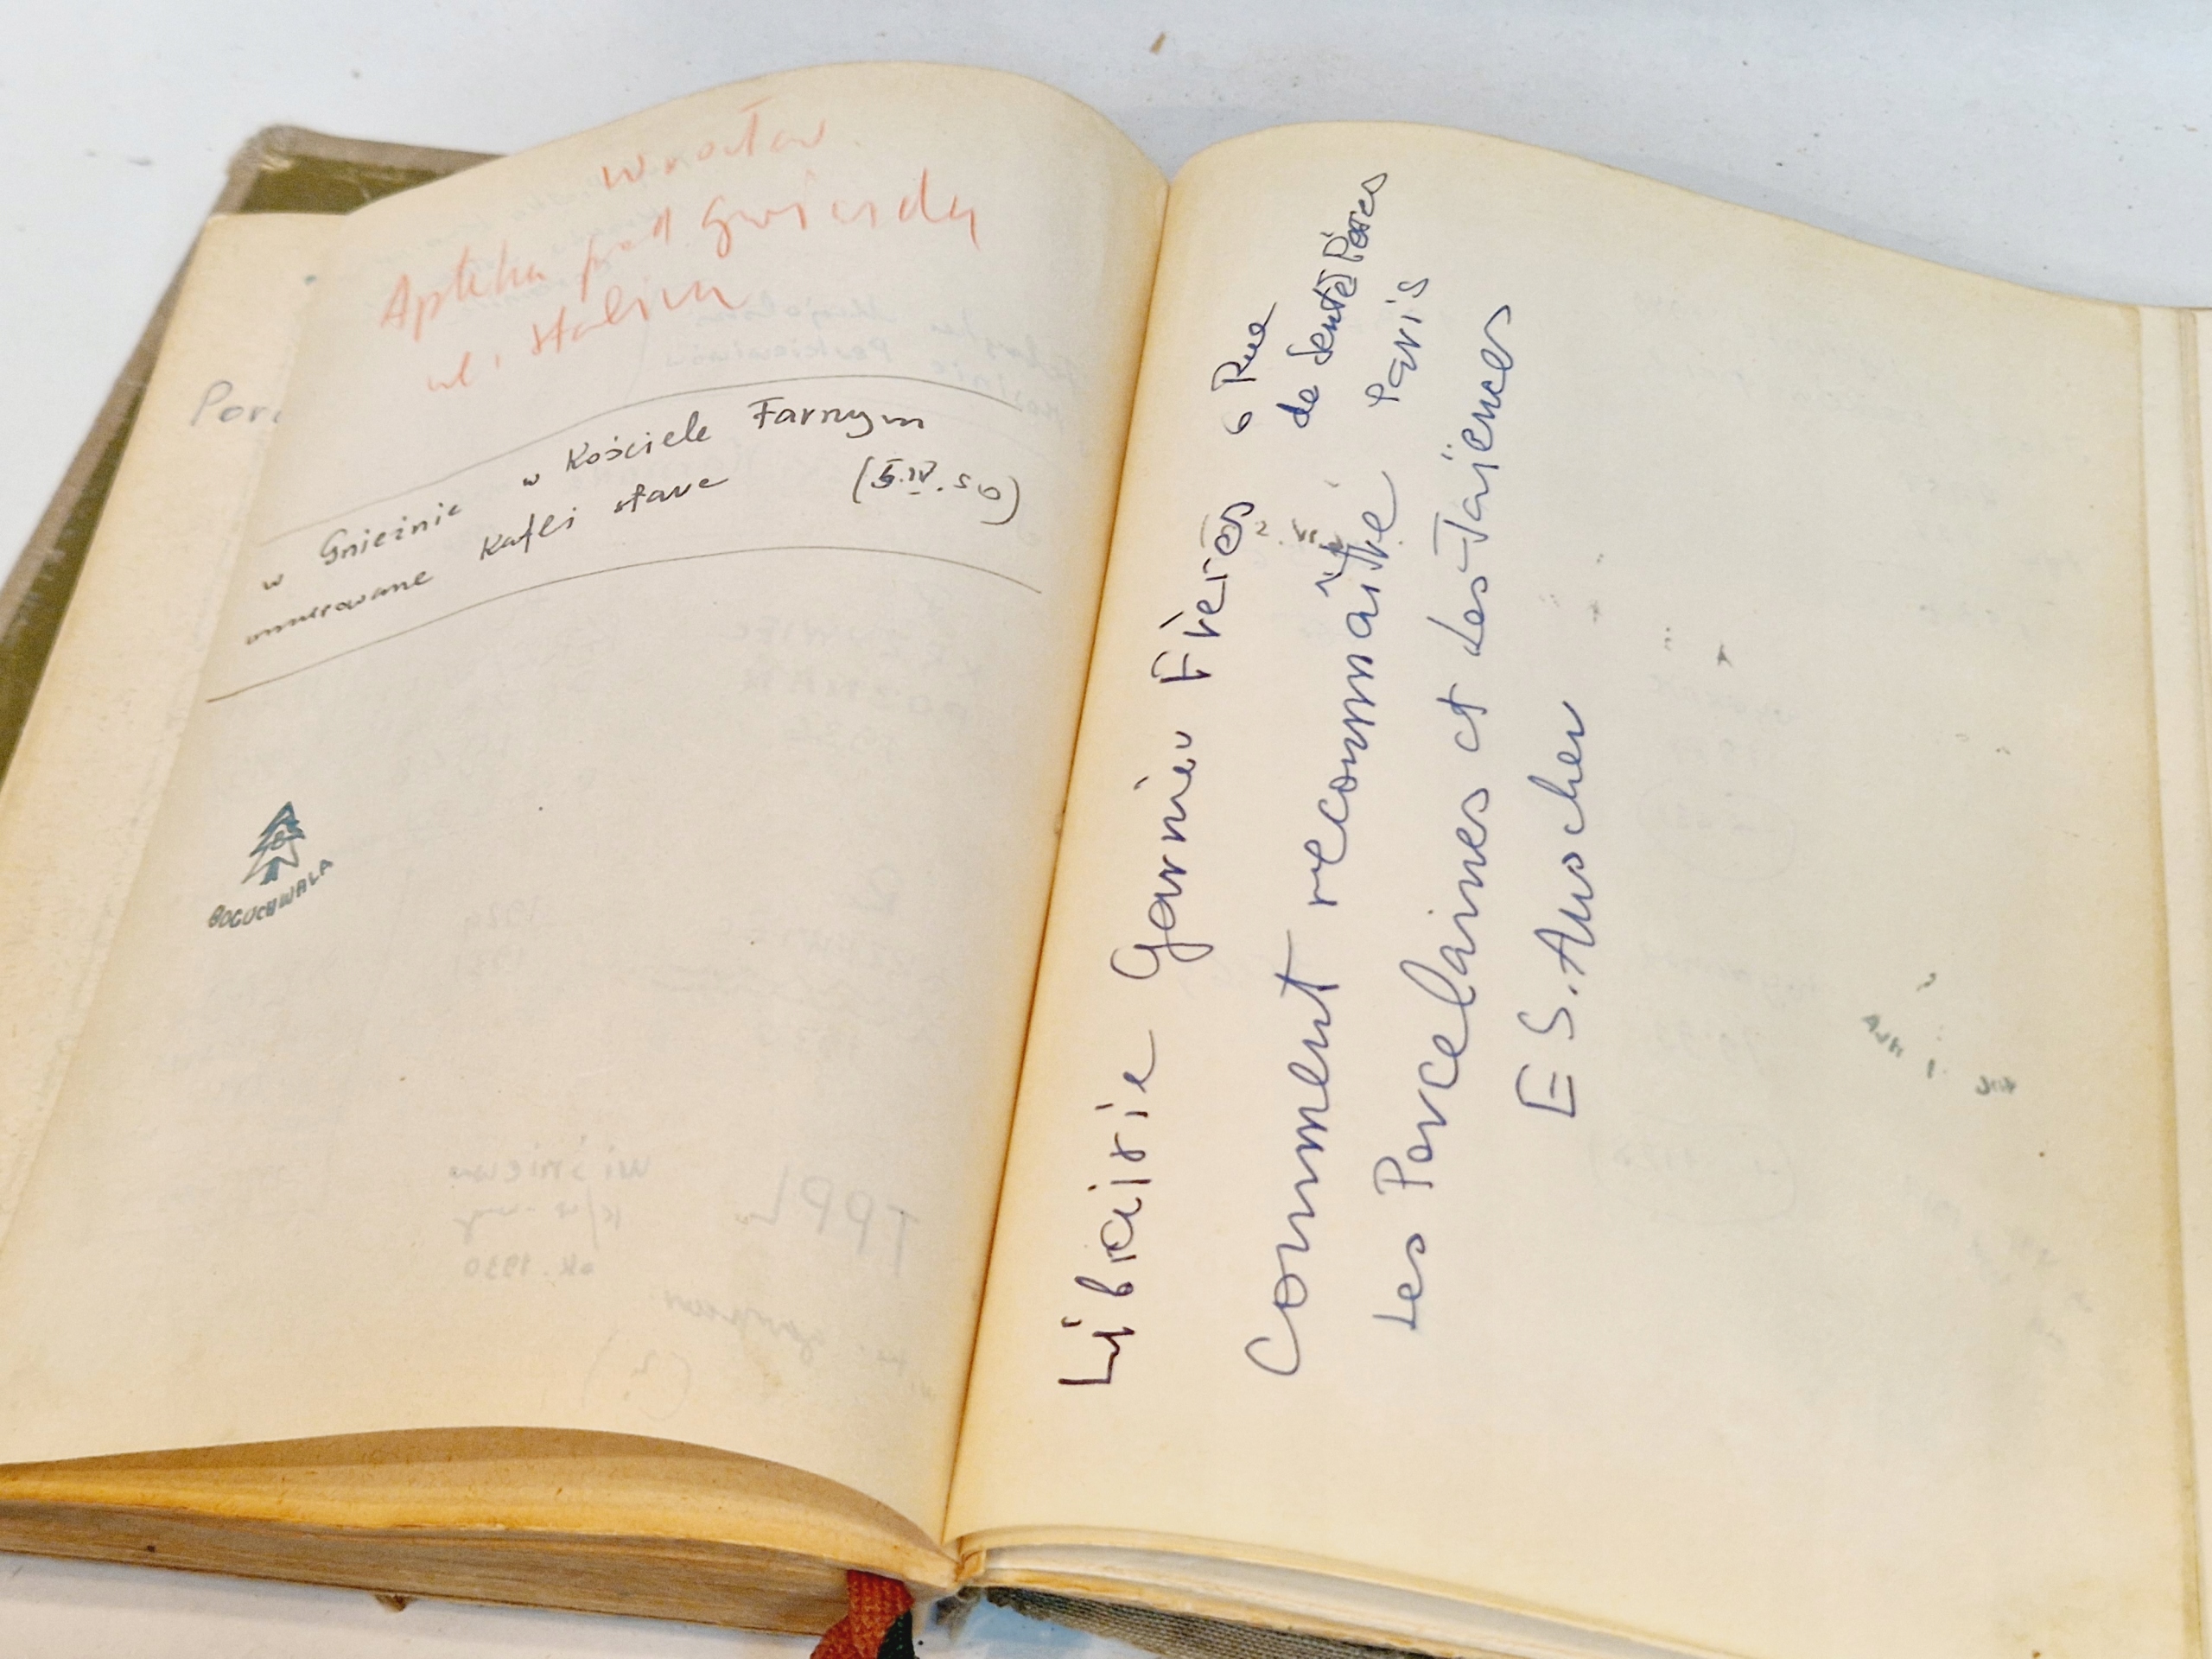 Wrocław
Apteka pod Gwiazdą
ul. Stalina
w Gnieźnie w Kościele Farnym
wmurowane Kafli stare (5.IV.50)
Por
BOGUCHWAŁA
Librairie Garnier Frères 6 Rue
de Sentes Pères
Paris
Comment reconnaitre
Les Porcelaines et Les Faïences
E S. Auscher